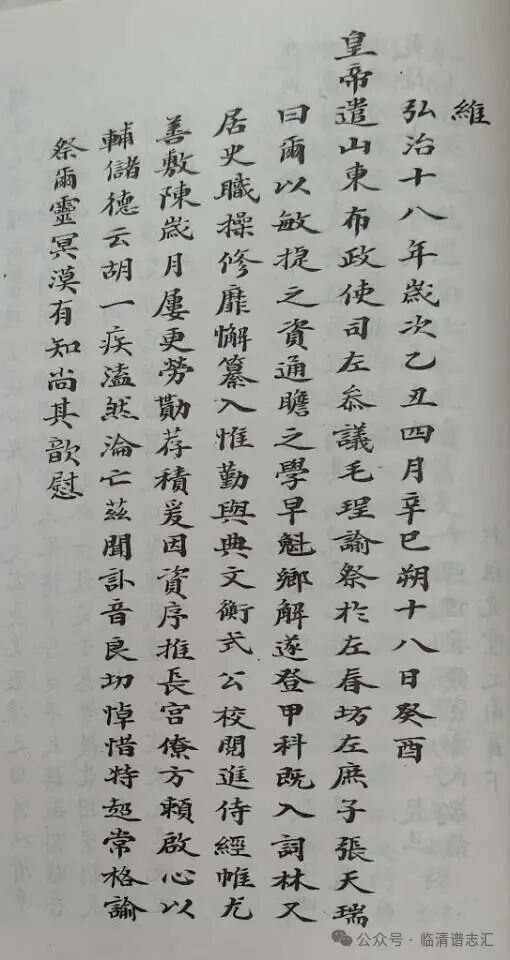 維
弘治十八年歲次乙丑四月辛巳朔十八日癸酉
皇帝遣山東布政使司左叅議毛珵諭祭於左春坊左庶子張天瑞
曰爾以敏捷之資通瞻之學早魁鄉解遂登甲科既入詞林又
居史職操修靡懈纂入惟勤與典文衡式公校閱進侍經帷尤
善敷陳歲月屢更勞勩荐積爰因資序推長宮僚方賴啟心以
輔儲德云胡一疾溘然淪亡茲聞訃音良切悼惜特超常格諭
祭爾靈冥漠有知尚其歆慰
公众号·临清谱志汇